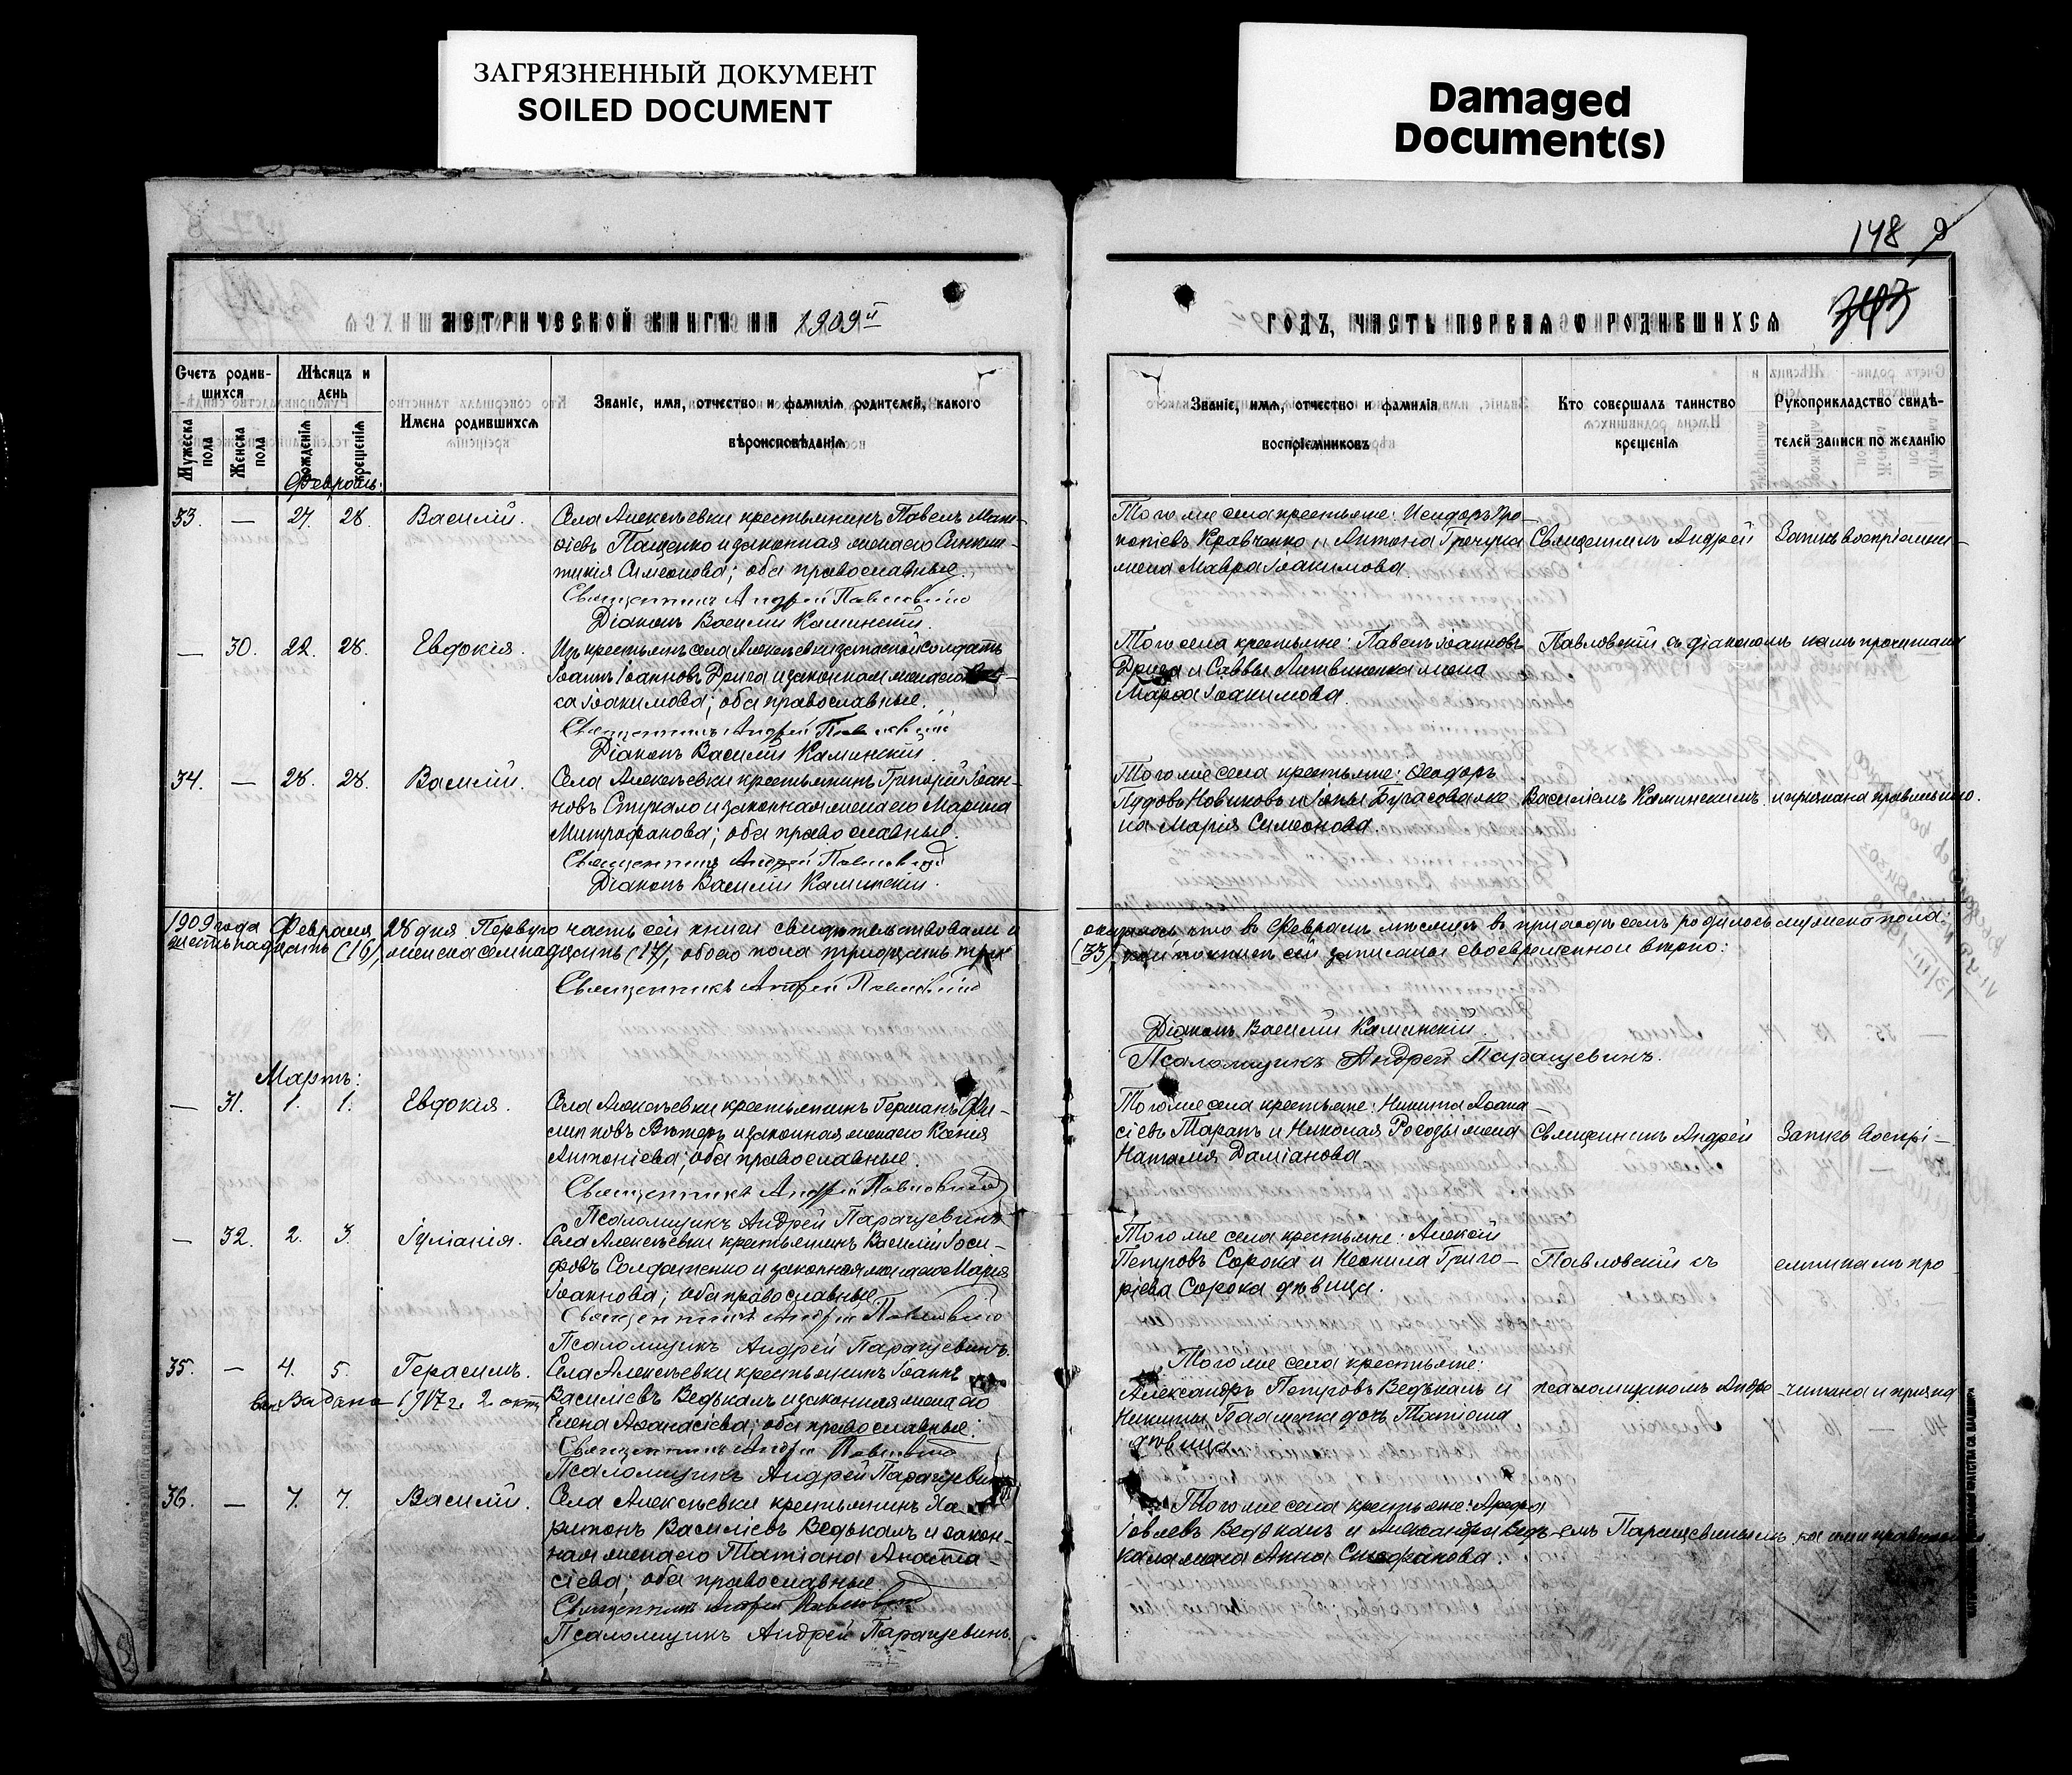 ЗАГРЯЗНЕННЫЙ ДОКУМЕНТ
SOILED DOCUMENT
Damaged
Document(s)
148
МЕТРИЧЕСКОЙ КНИГИ НА 1909й
Счетъ родив-
шихся
Мѣсяцъ и
день
Мужеска пола
Женска пола
рожденія
крещенія
Имена родившихся
Званіе, имя, отчество и фамилія родителей, какого
вѣроисповѣданія
Февраль:
33. — 27. 28. Василій. Села Алексѣевки крестьянинъ Павелъ
Пащенко и законная жена его Синкли-
тикія Симеонова; оба православные.
Священникъ Андрей Павловскій
Діаконъ Василій Каминскій.
— 30. 22. 28. Евдокія. Изъ крестьянъ села Алексѣевки запасной солдатъ
Іоаннъ Іоанновъ Дрига и законная жена его
Іоакимова; оба православные.
Священникъ Андрей Павловскій
Діаконъ Василій Каминскій.
34. — 28. 28. Василій. Села Алексѣевки крестьянинъ Григорій Іоан-
новъ Стукало и законная жена его Марина
Митрофанова; оба православные.
Священникъ Андрей Павловскій
Діаконъ Василій Каминскій.
1909 года Февраля, 28 дня. Первую часть сей книги свидѣтельствовали и
шестнадцать (16), женска семнадцать (17), обоего пола тридцать три
Священникъ Андрей Павловскій
Мартъ:
— 31. 1. 1. Евдокія. Села Алексѣевки крестьянинъ Германъ Фи-
липповъ Вѣтеръ и законная жена его Ксенія
Антоніева; оба православные.
Священникъ Андрей Павловскій
Псаломщикъ Андрей Паращевинъ
— 32. 2. 3. Іуліанія. Села Алексѣевки крестьянинъ Василій Іоси-
фовъ Солдатенко и законная жена его Марія
Іоаннова; оба православные.
Священникъ Андрей Павловскій
Псаломщикъ Андрей Паращевинъ.
35. — 4. 5. Герасимъ. Села Алексѣевки крестьянинъ Іоаннъ
Выдана 1917 г. 2 окт. Василіевъ Ведькалъ и законная жена его
Елена Аѳанасіева; оба православные.
Священникъ Андрей Павловскій
Псаломщикъ Андрей Паращевинъ
36. — 7. 7. Василій. Села Алексѣевки крестьянинъ Ха-
ритонъ Василіевъ Ведькалъ и закон-
ная жена его Татіана Анаста-
сіева; оба православные.
Священникъ Андрей Павловскій
Псаломщикъ Андрей Паращевинъ.
ГОДЪ, ЧАСТЬ ПЕРВАЯ О РОДИВШИХСЯ
Званіе, имя, отчество и фамилія
воспріемниковъ
Кто совершалъ таинство
крещенія
Рукоприкладство свидѣ-
телей записи по желанію
Того же села крестьяне: Исидоръ Про-
копіевъ Кравченко и Антона Гречука Священникъ Андрей Запись воспріемни-
жена Мавра Іоакимова.
Того села крестьяне: Павелъ Іоанновъ Павловскій съ діакономъ камъ прочитана
Дрига и Саввы Литвиненка жена
Марѳа Іоакимова.
Того же села крестьяне: Ѳеодоръ
Новиковъ и Василіемъ Каминскимъ и признана правильною.
на Марія Симеонова.
оказалось, что въ Февралѣ мѣсяцѣ въ приходѣ семъ родилось мужеска пола:
(33), кои по книгѣ сей записаны своевременно и вѣрно:
Діаконъ Василій Каминскій.
Псаломщикъ Андрей Паращевинъ.
Того же села крестьяне: Никита Аѳана-
сіевъ Таранъ и Николая Рогозы жена Священникъ Андрей Запись воспрі-
Наталія Даміанова.
Того же села крестьяне: Алексѣй
Петровъ Сорока и Неонила Григо- Павловскій съ емникамъ про
ріева Сорока дѣвица.
Того же села крестьяне:
Александръ Петровъ Ведькалъ и псаломщикомъ Андре читана и призна
Никиты дочь Татіана
дѣвица.
Того же села крестьяне:
Іовлевъ Ведькалъ и Александра Ведь- емъ Паращевинымъ
кала жена Анна Стефанова